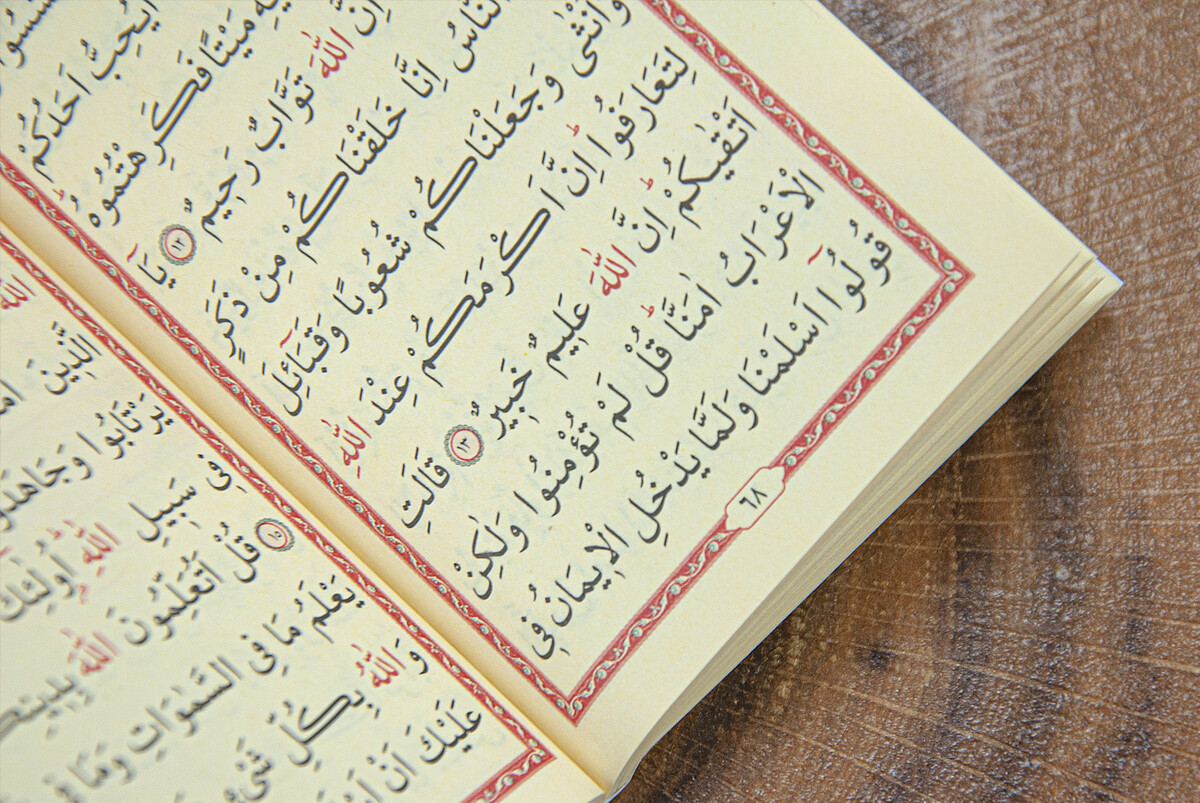 اَيُحِبُّ اَحَدُكُمْ
مَيْتًا فَكَرِهْتُمُوهُۜ
اِنَّ اللّٰهَ تَوَّابٌ رَحِيمٌ ﴿١٢﴾ يَٓا
النَّاسُ اِنَّا خَلَقْنَاكُمْ مِنْ ذَكَرٍ
وَاُنْثٰى وَجَعَلْنَاكُمْ شُعُوبًا وَقَبَٓائِلَ
لِتَعَارَفُواۜ اِنَّ اَكْرَمَكُمْ عِنْدَ اللّٰهِ
اَتْقٰيكُمْۜ اِنَّ اللّٰهَ عَلِيمٌ خَبِيرٌ ﴿١٣﴾ قَالَتِ
الْاَعْرَابُ اٰمَنَّاۜ قُلْ لَمْ تُؤْمِنُوا وَلٰكِنْ
قُولُٓوا اَسْلَمْنَا وَلَمَّا يَدْخُلِ الْاِيمَانُ فِي
٦٨
اللّٰهَ
الَّذِينَ
يَرْتَابُوا وَجَاهَدُوا
فِي سَبِيلِ اللّٰهِۜ اُولٰٓئِكَ
﴿١٥﴾ قُلْ اَتُعَلِّمُونَ اللّٰهَ
يَعْلَمُ مَا فِي السَّمٰوَاتِ وَمَا فِي
وَاللّٰهُ بِكُلِّ شَيْءٍ
عَلَيْكَ اَنْ